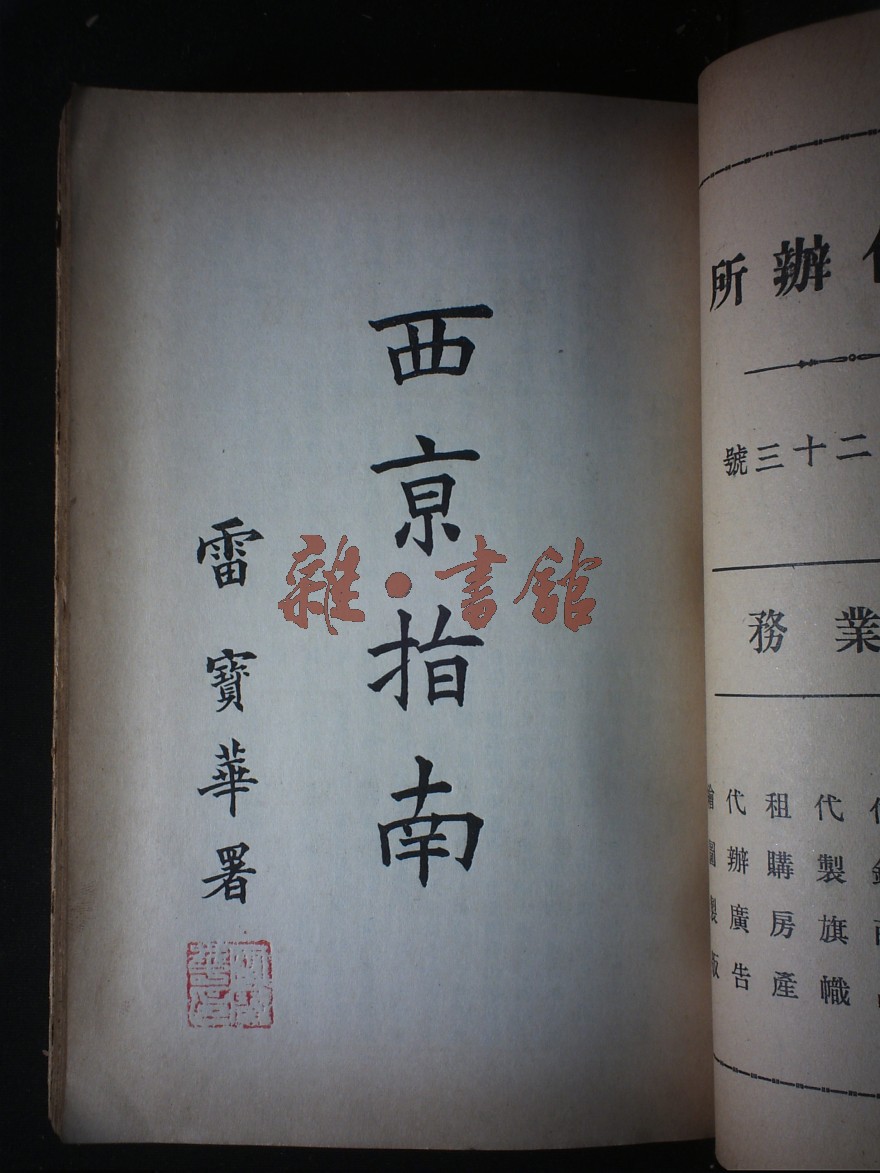 西京指南
雷寶華署
雜·書館
辦所
二十三號
業務
代製旗幟
租購房產
代辦廣告